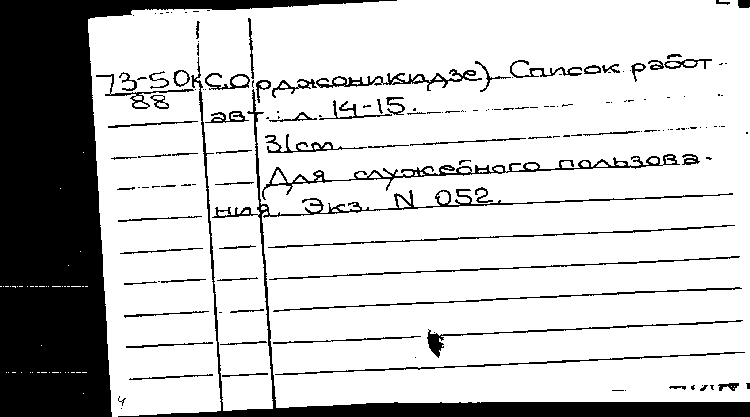 73-50к С.Орджоникидзе). Список работ
88
авт.: л. 14-15.
31см.
Для служебного пользова-
ния. Экз. N 052.
4